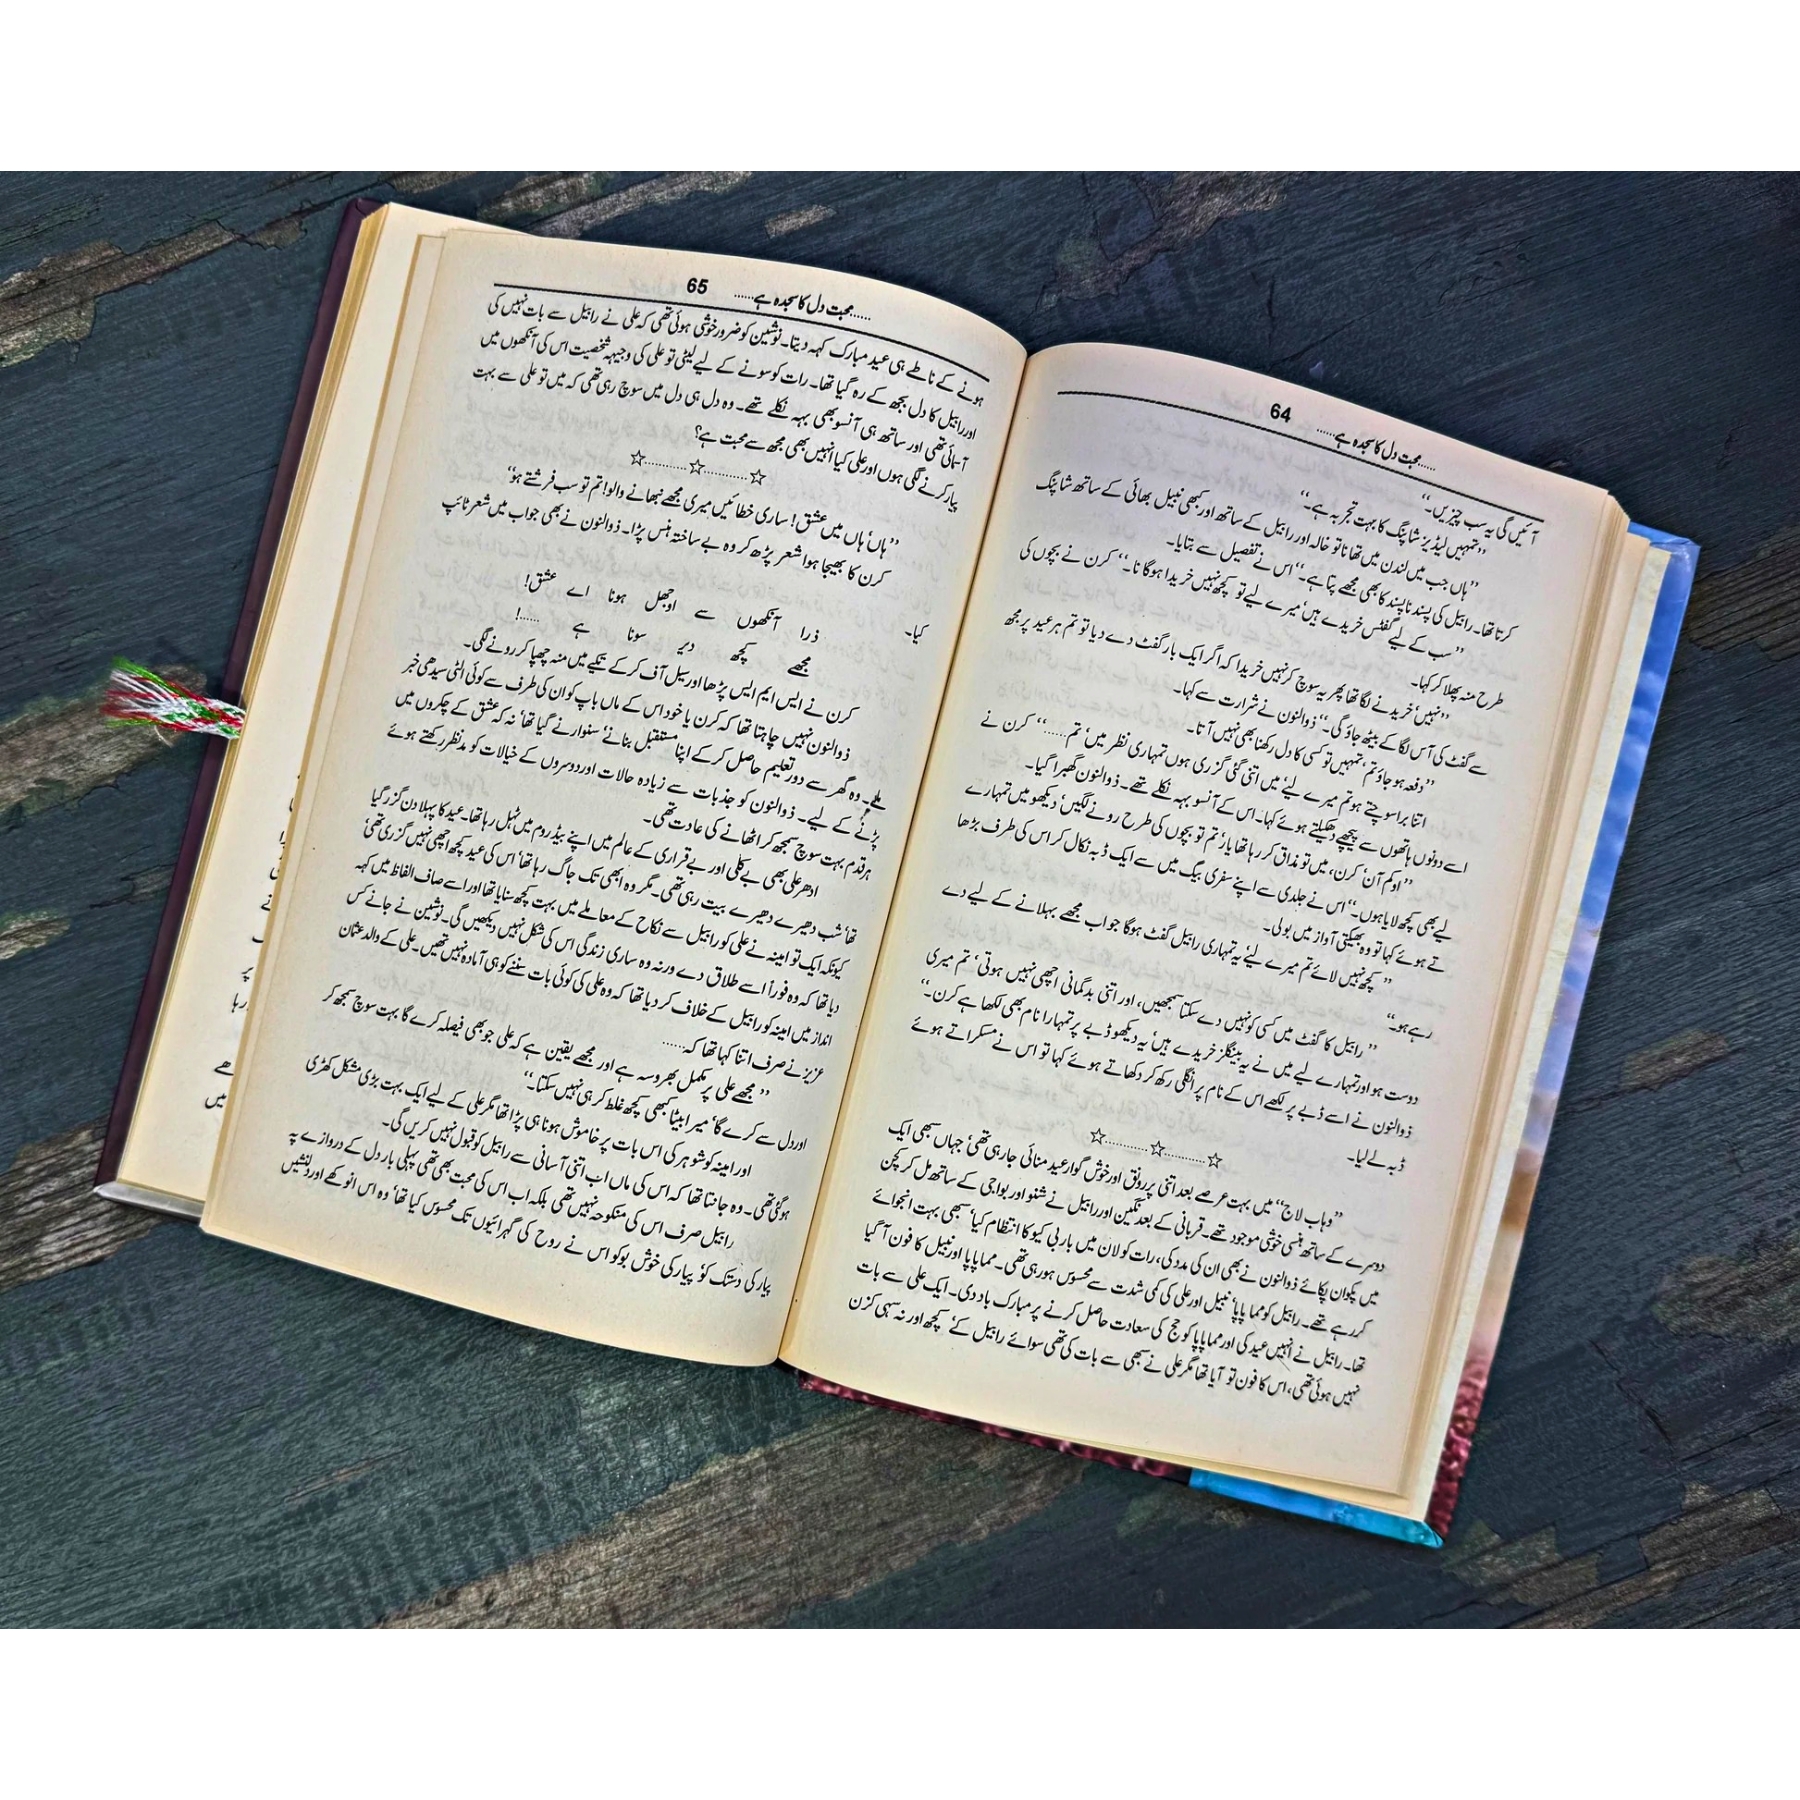 64 ......محبت دل کا سجدہ ہے......
آئیں گی یہ سب چیزیں۔‘‘
’’تمہیں لیڈیز شاپنگ کا بہت تجربہ ہے۔‘‘
’’ہاں جب میں لندن میں تھا نا تو خالہ اور رابیل کے ساتھ اور کبھی نبیل بھائی کے ساتھ شاپنگ
کرتا تھا۔ رابیل کی پسند ناپسند کا بھی مجھے پتا ہے۔‘‘ اس نے تفصیل سے بتایا۔
’’سب کے لیے گفٹس خریدے ہیں‘ میرے لیے تو کچھ نہیں خریدا ہو گا نا۔‘‘ کرن نے بچوں کی
طرح منہ پھلا کر کہا۔
’’نہیں‘ خریدنے لگا تھا پھر یہ سوچ کر نہیں خریدا کہ اگر ایک بار گفٹ دے دیا تو تم ہر عید پر مجھ
سے گفٹ کی آس لگا کے بیٹھ جاؤ گی۔‘‘ ذوالنون نے شرارت سے کہا۔
’’دفعہ ہو جاؤ تم‘ تمہیں تو کسی کا دل رکھنا بھی نہیں آتا۔
اتنا برا سوچتے ہو تم میرے لیے‘ میں اتنی گئی گزری ہوں تمہاری نظر میں‘ تم......‘‘ کرن نے
اسے دونوں ہاتھوں سے پیچھے دھکیلتے ہوئے کہا۔ اس کے آنسو بہہ نکلے تھے۔ ذوالنون گھبرا گیا۔
’’او کم آن‘ کرن، میں تو مذاق کر رہا تھا یار‘ تم تو بچوں کی طرح رونے لگیں‘ دیکھو میں تمہارے
لیے بھی کچھ لایا ہوں۔‘‘ اس نے جلدی سے اپنے سفری بیگ میں سے ایک ڈبہ نکال کر اس کی طرف بڑھا
تے ہوئے کہا تو وہ بھیگتی آواز میں بولی۔
’’کچھ نہیں لائے تم میرے لیے‘ یہ تمہاری رابیل گفٹ ہوگا جو اب مجھے بہلانے کے لیے دے
رہے ہو۔‘‘
’’رابیل کا گفٹ میں کسی کو نہیں دے سکتا سمجھیں، اور اتنی بدگمانی اچھی نہیں ہوتی‘ تم میری
دوست ہو اور تمہارے لیے میں نے یہ بینگلز خریدے ہیں‘ یہ دیکھو ڈبے پر تمہارا نام بھی لکھا ہے کرن۔‘‘
ذوالنون نے اسے ڈبے پر لکھے اس کے نام پر انگلی رکھ کر دکھاتے ہوئے کہا تو اس نے مسکراتے ہوئے
ڈبہ لے لیا۔
☆..........☆..........☆
’’وہاب لاج‘‘ میں بہت عرصے بعد اتنی پر رونق اور خوش گوار عید منائی جا رہی تھی‘ جہاں سبھی ایک
دوسرے کے ساتھ ہنسی خوشی موجود تھے۔ قربانی کے بعد نگین اور رابیل نے شنو اور بواجی کے ساتھ مل کر کچن
میں پکوان پکائے ذوالنون نے بھی ان کی مدد کی، رات کو لان میں باربی کیو کا انتظام کیا‘ سبھی بہت انجوائے
کر رہے تھے۔ رابیل کو مما پاپا‘ نبیل اور علی کی کمی شدت سے محسوس ہو رہی تھی۔ مما پاپا اور نبیل کا فون آ گیا
تھا۔ رابیل نے انہیں عید کی اور مما پاپا کو حج کی سعادت حاصل کرنے پر مبارک باد دی۔ ایک علی سے بات
نہیں ہوئی تھی، اس کا فون تو آیا تھا مگر علی نے سبھی سے بات کی تھی سوائے رابیل کے‘ کچھ اور نہ سہی کزن
65 ......محبت دل کا سجدہ ہے......
ہونے کے ناطے ہی عید مبارک کہہ دیتا۔ نوشین کو ضرور خوشی ہوئی تھی کہ علی نے رابیل سے بات نہیں کی
اور رابیل کا دل بجھ کے رہ گیا تھا۔ رات کو سونے کے لیے لیٹی تو علی کی وجیہہ شخصیت اس کی آنکھوں میں
آسمائی تھی اور ساتھ ہی آنسو بھی بہہ نکلے تھے۔ وہ دل ہی دل میں سوچ رہی تھی کہ میں تو علی سے بہت
پیار کرنے لگی ہوں اور علی کیا انہیں بھی مجھ سے محبت ہے؟
☆..........☆..........☆
’’ہاں‘ ہاں میں عشق! ساری خطائیں میری مجھے نبھانے والو! تم تو سب فرشتے ہو‘‘
کرن کا بھیجا ہوا شعر پڑھ کر وہ بے ساختہ ہنس پڑا۔ ذوالنون نے بھی جواب میں شعر ٹائپ
کیا۔
ذرا آنکھوں سے اوجھل ہونا اے عشق!
مجھے کچھ دیر سونا ہے ......!
کرن نے ایس ایم ایس پڑھا اور سیل آف کر کے تکیے میں منہ چھپا کر رونے لگی۔
ذوالنون نہیں چاہتا تھا کہ کرن یا خود اس کے ماں باپ کو ان کی طرف سے کوئی الٹی سیدھی خبر
ملے۔ وہ گھر سے دور تعلیم حاصل کر کے اپنا مستقبل بنانے‘ سنوارنے گیا تھا‘ نہ کہ عشق کے چکروں میں
پڑنے کے لیے۔ ذوالنون کو جذبات سے زیادہ حالات اور دوسروں کے خیالات کو مدنظر رکھتے ہوئے
ہر قدم بہت سوچ سمجھ کر اٹھانے کی عادت تھی۔
ادھر علی بھی بے کلی اور بے قراری کے عالم میں اپنے بیڈ روم میں ٹہل رہا تھا۔ عید کا پہلا دن گزر گیا
تھا‘ شب دھیرے دھیرے بیت رہی تھی۔ مگر وہ ابھی تک جاگ رہا تھا‘ اس کی عید کچھ اچھی نہیں گزری تھی‘
کیونکہ ایک تو امینہ نے علی کو رابیل سے نکاح کے معاملے میں بہت کچھ سنایا تھا اور اسے صاف الفاظ میں کہہ
دیا تھا کہ وہ فوراً اسے طلاق دے ورنہ وہ ساری زندگی اس کی شکل نہیں دیکھیں گی۔ نوشین نے جانے کس
انداز میں امینہ کو رابیل کے خلاف کر دیا تھا کہ وہ علی کی کوئی بات سننے کو ہی آمادہ نہیں تھیں۔ علی کے والد عثمان
عزیز نے صرف اتنا کہا تھا کہ......
’’مجھے علی پر مکمل بھروسہ ہے اور مجھے یقین ہے کہ علی جو بھی فیصلہ کرے گا بہت سوچ سمجھ کر
اور دل سے کرے گا‘ میرا بیٹا کبھی کچھ غلط کر ہی نہیں سکتا۔‘‘
اور امینہ کو شوہر کی اس بات پر خاموش ہونا ہی پڑا تھا مگر علی کے لیے ایک بہت بڑی مشکل کھڑی
ہوگئی تھی۔ وہ جانتا تھا کہ اس کی ماں اب اتنی آسانی سے رابیل کو قبول نہیں کریں گی۔
رابیل صرف اس کی منکوحہ نہیں تھی بلکہ اب اس کی محبت بھی تھی پہلی بار دل کے دروازے پہ
پیار کی دستک کو‘ پیار کی خوش بو کو اس نے روح کی گہرائیوں تک محسوس کیا تھا‘ وہ اس انوکھے اور دلنشیں